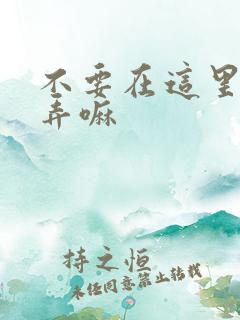 不要在這里
弄嘛
持之恒
未经同意禁止转载